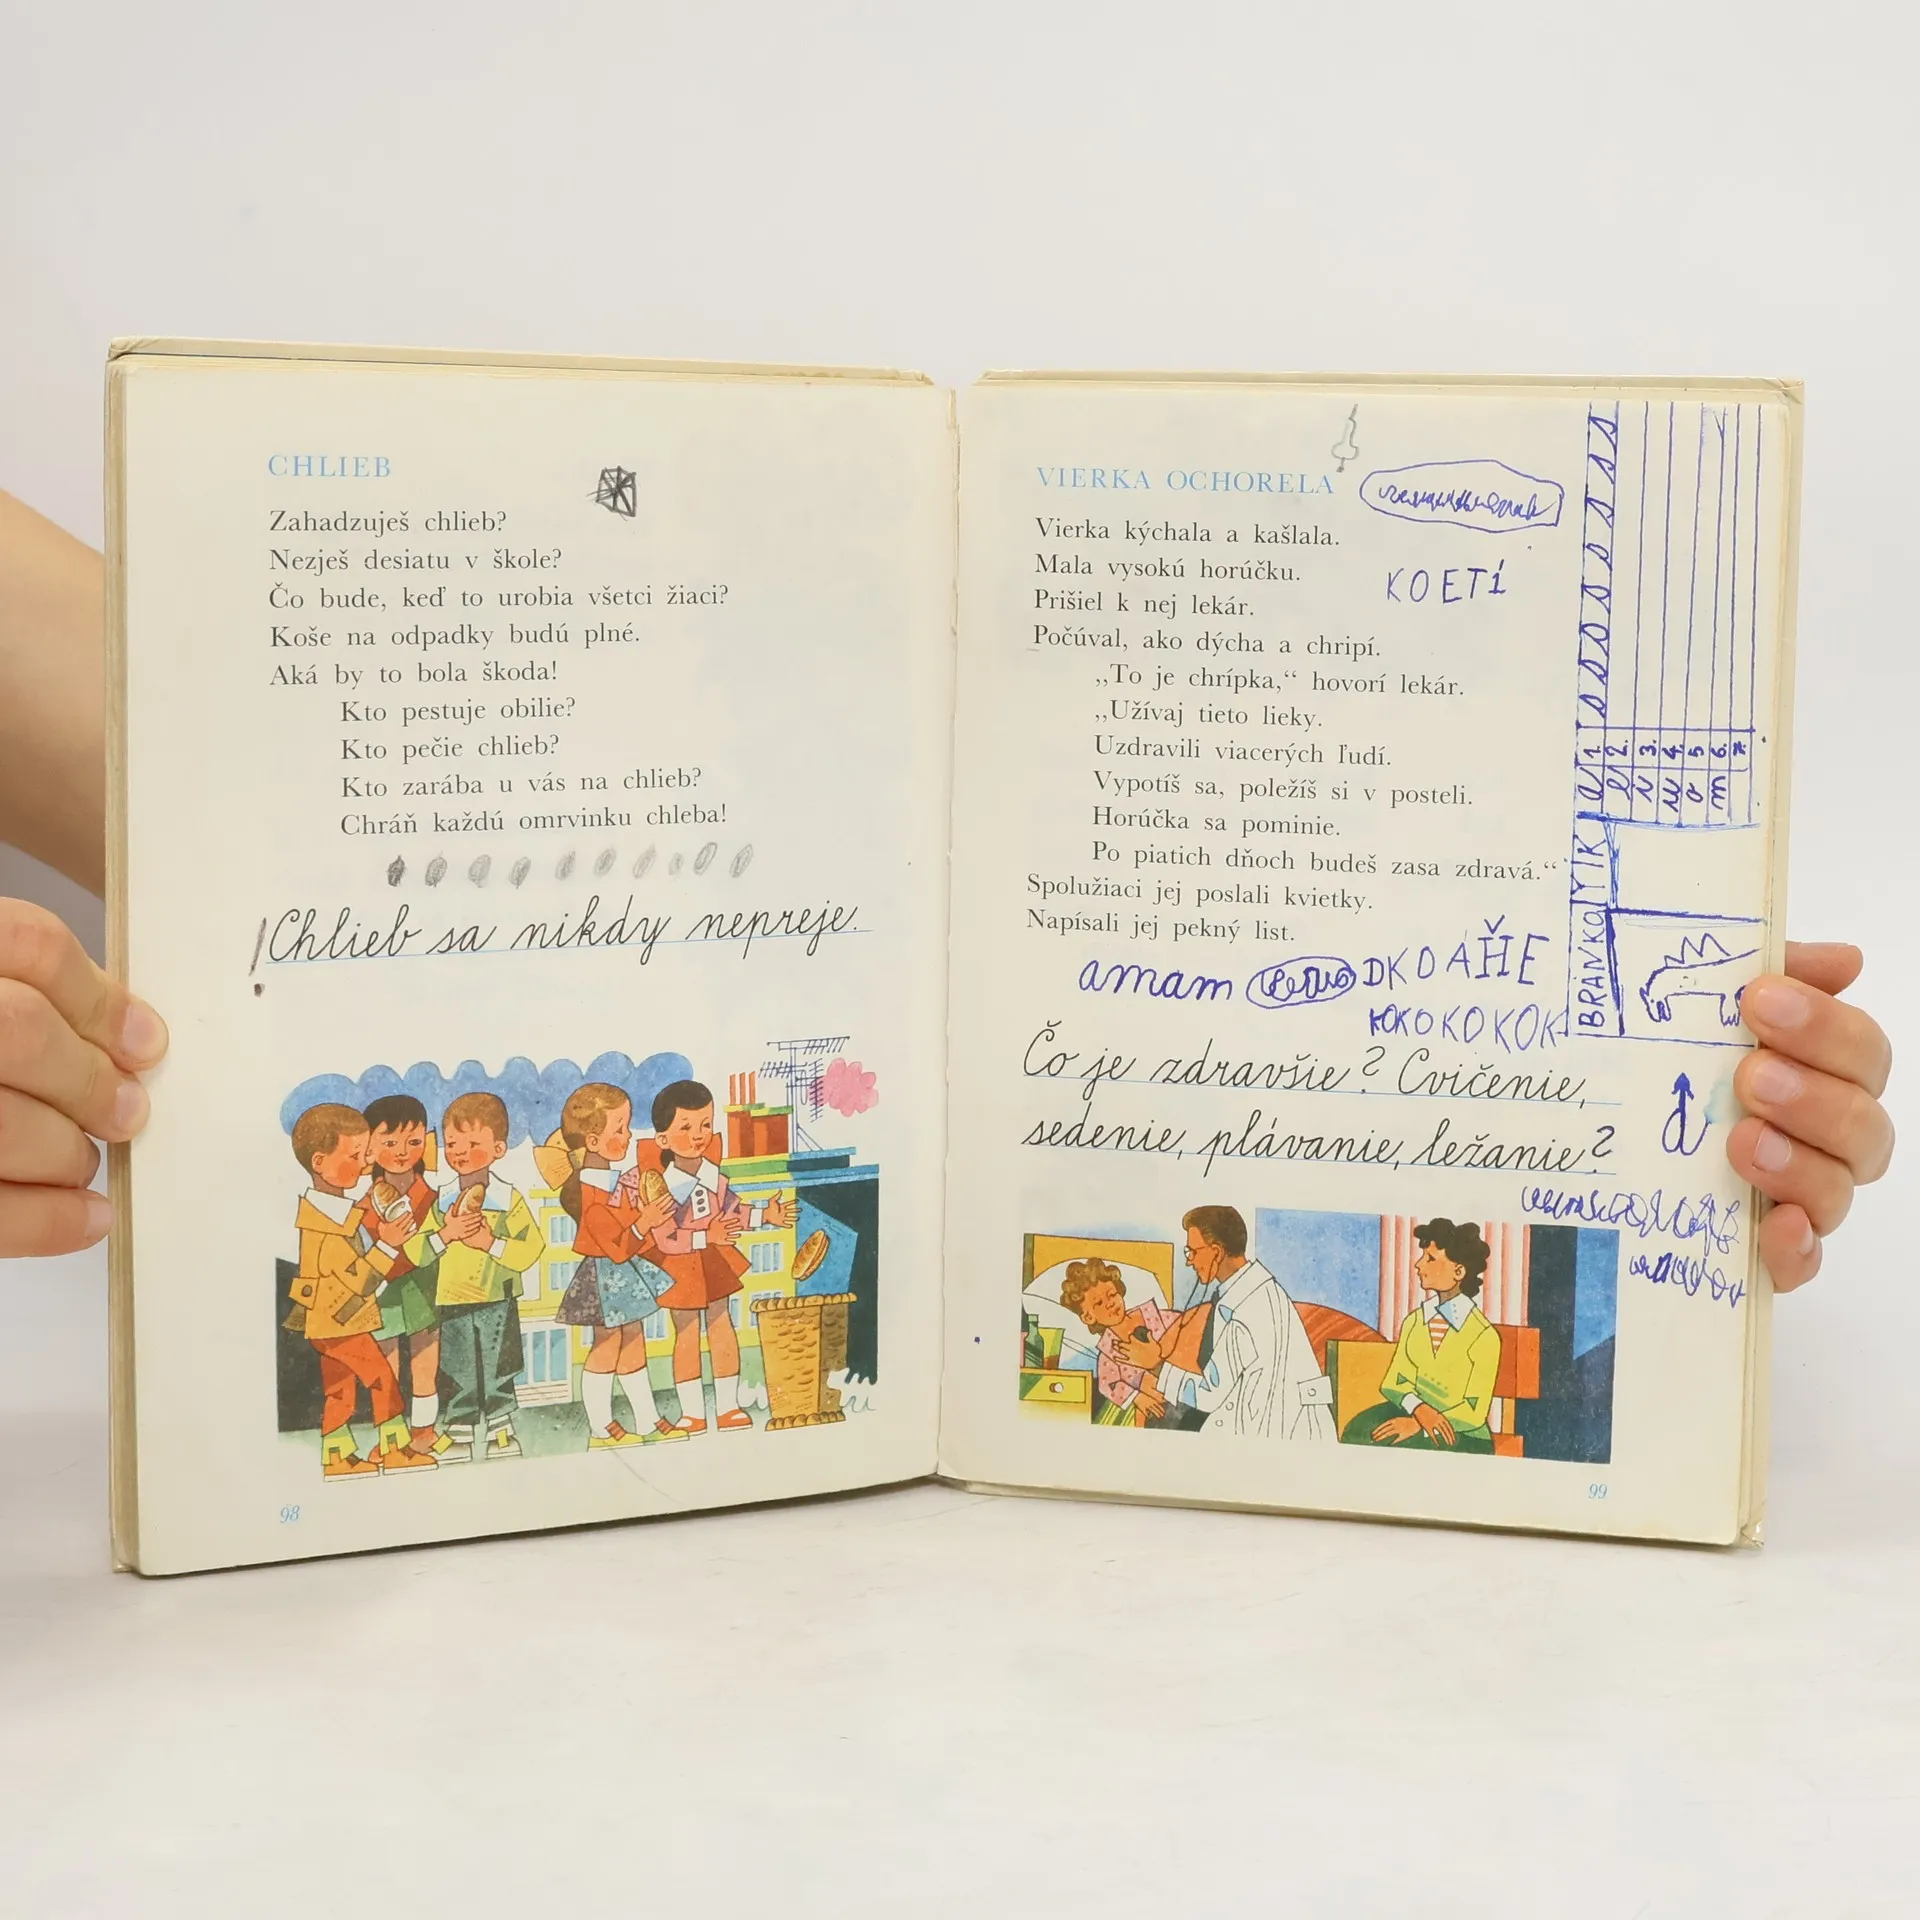 CHLIEB
Zahadzuješ chlieb?
Nezješ desiatu v škole?
Čo bude, keď to urobia všetci žiaci?
Koše na odpadky budú plné.
Aká by to bola škoda!
Kto pestuje obilie?
Kto pečie chlieb?
Kto zarába u vás na chlieb?
Chráň každú omrvinku chleba!
Chlieb sa nikdy nepreje.
98
VIERKA OCHORELA
Vierka kýchala a kašlala.
Mala vysokú horúčku.
KOETÍ
Prišiel k nej lekár.
Počúval, ako dýcha a chripí.
„To je chrípka,“ hovorí lekár.
„Užívaj tieto lieky.
Uzdravili viacerých ľudí.
Vypotíš sa, poležíš si v posteli.
Horúčka sa pominie.
Po piatich dňoch budeš zasa zdravá.“
Spolužiaci jej poslali kvietky.
Napísali jej pekný list.
amam
KOKOKOKOK
Čo je zdravšie? Cvičenie,
sedenie, plávanie, ležanie?
99
BRANKOVÍK
1.
2.
3.
4.
5
6.
7.